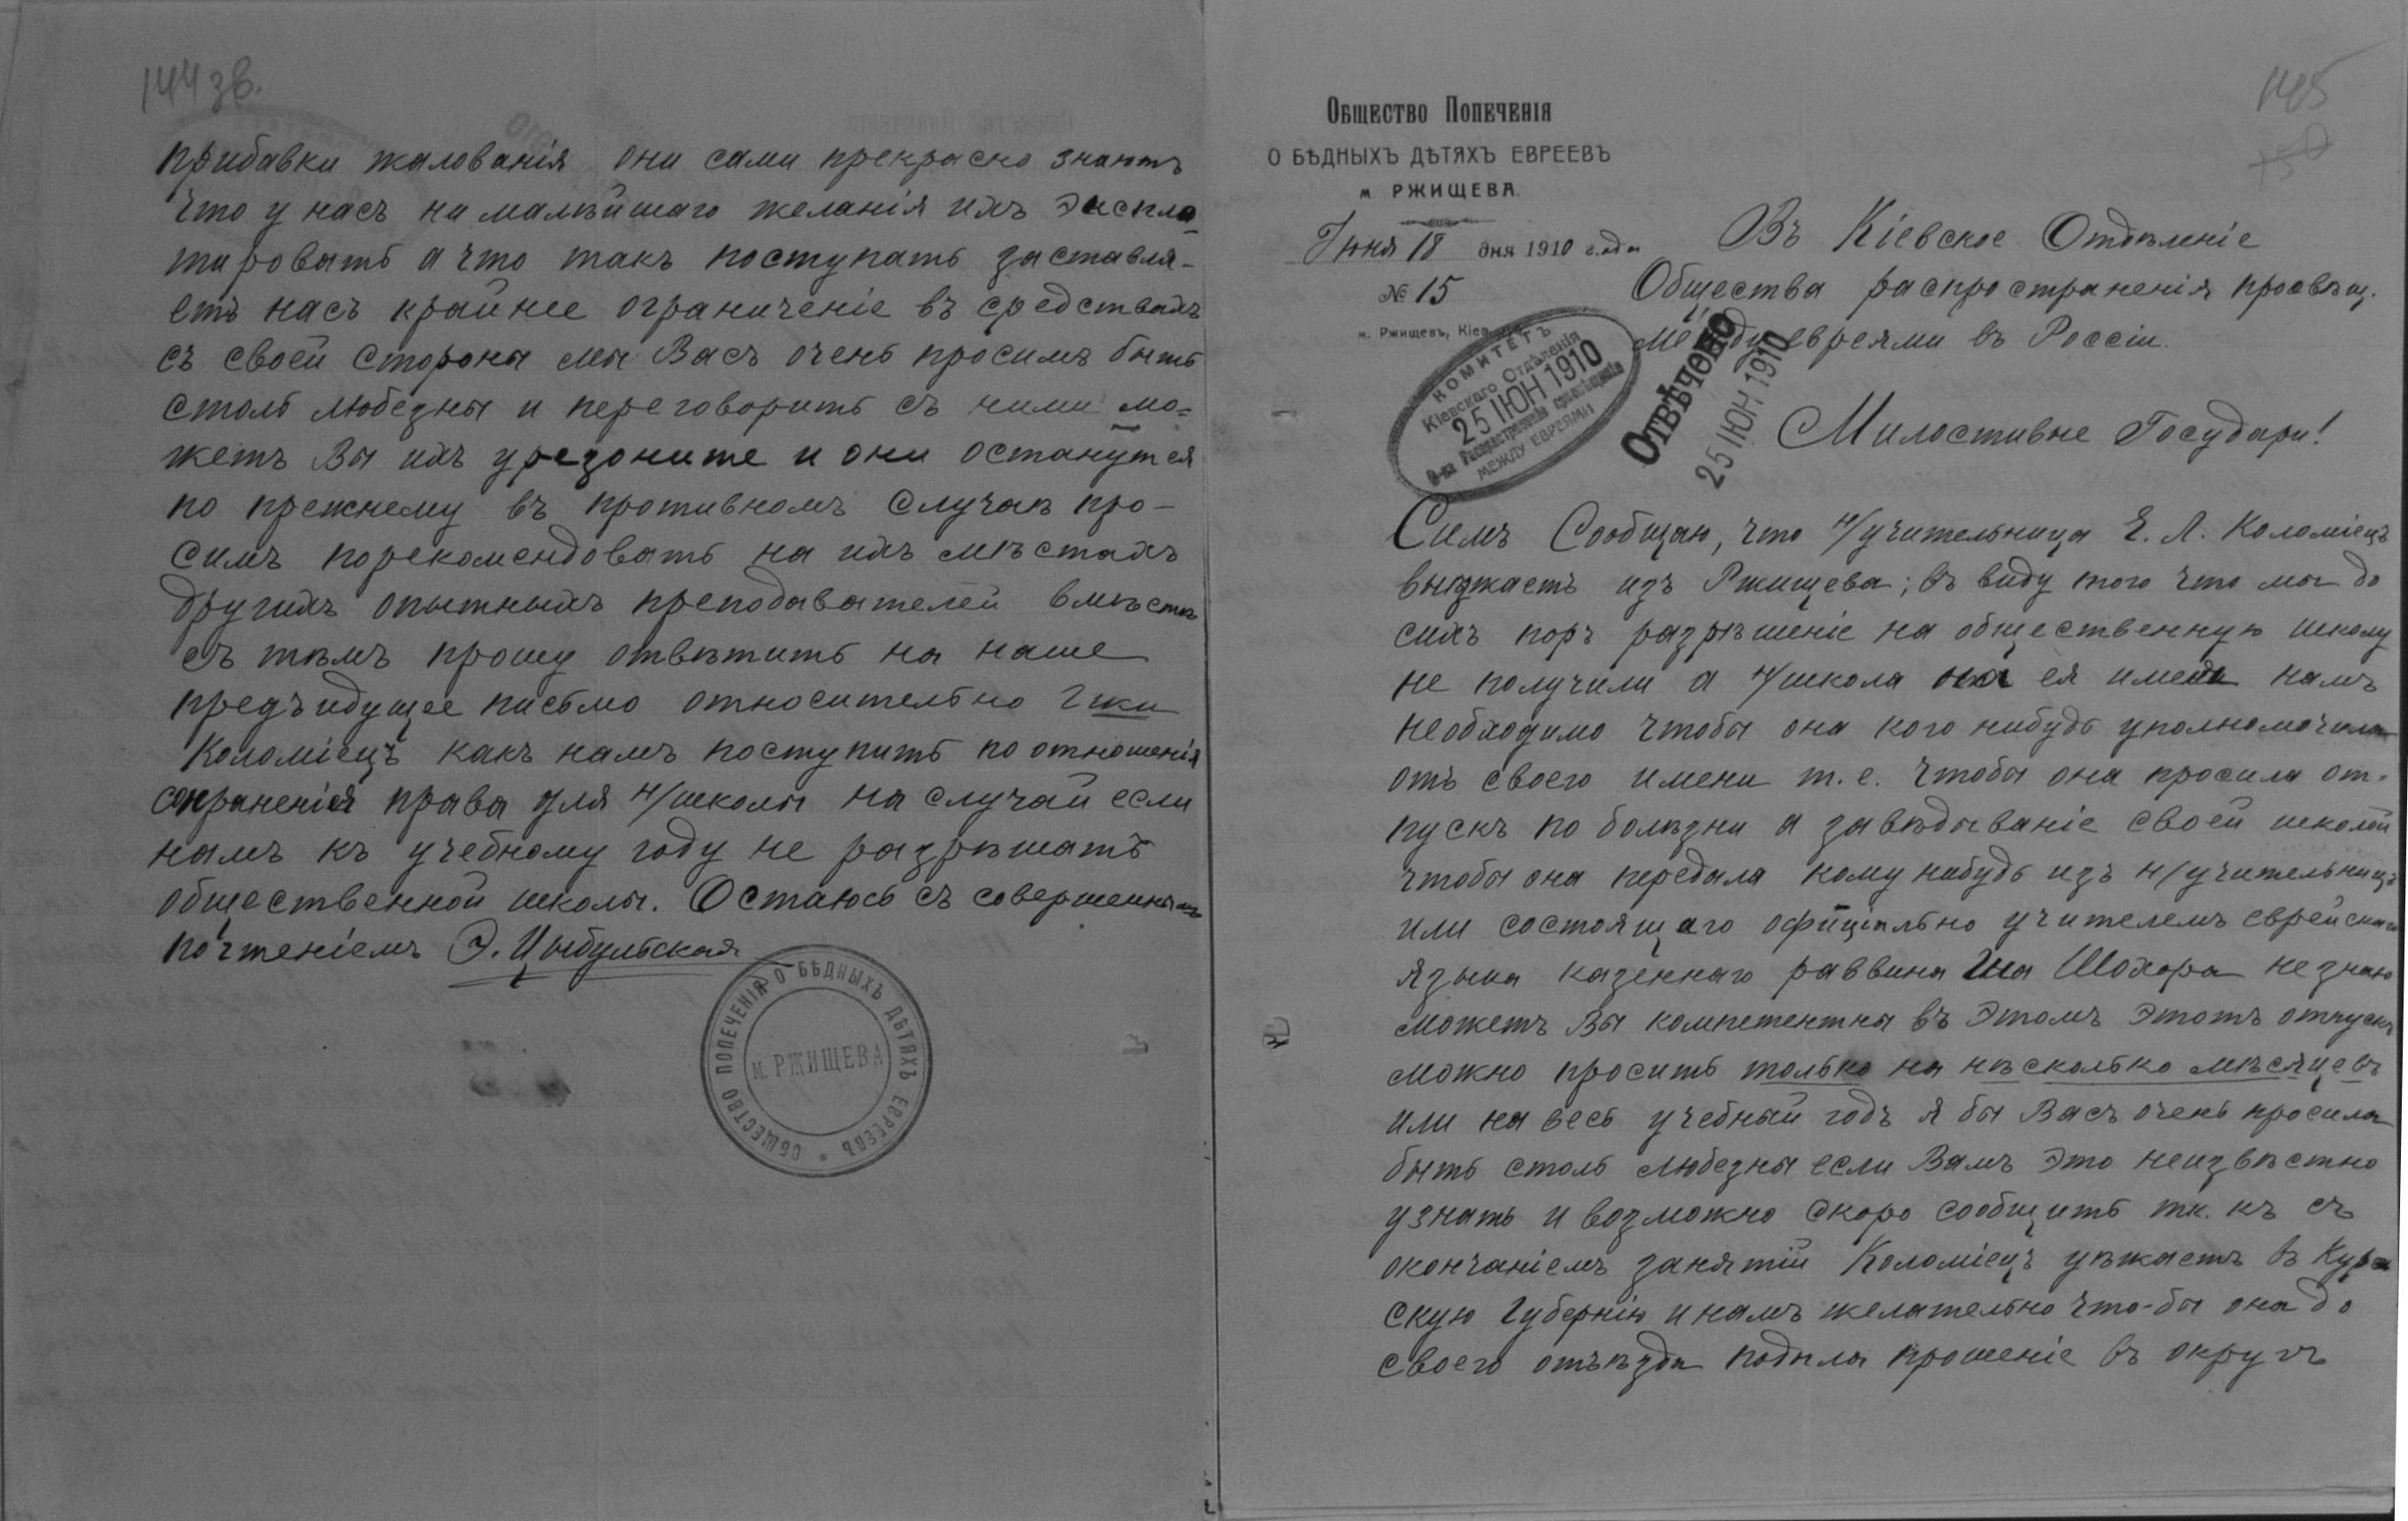 144 зв.
прибавки жалованія они сами прекрасно знаютъ
что у насъ ни малѣйшаго желанія ихъ эксплоа-
тировать а что такъ поступать заставля-
етъ насъ крайнее ограниченіе въ средствахъ
съ своей стороны мы Васъ очень просимъ быть
столь любезны и переговорить съ ними мо=
жетъ Вы ихъ урезоните и они останутся
по прежнему въ противномъ случаѣ про-
симъ порекомендовать на ихъ мѣстахъ
другихъ опытныхъ преподавателей вмѣстѣ
съ тѣмъ прошу отвѣтить на наше
предъидущее письмо относительно Гжи
Коломіецъ какъ намъ поступить по отношенія
сохраненія права для н/школы на случай если
намъ къ учебному году не разрѣшатъ
общественной школы. Остаюсь съ совершеннымъ
почтеніемъ Э. Цыбульская
ОБЩЕСТВО ПОПЕЧЕНІЯ О БѢДНЫХЪ ДѢТЯХЪ ЕВРЕЕВЪ *
м. РЖИЩЕВА
145
150
ОБЩЕСТВО ПОПЕЧЕНІЯ
О БѢДНЫХЪ ДѢТЯХЪ ЕВРЕЕВЪ
м. РЖИЩЕВА.
Іюня 18 дня 1910 года
№ 15
м. Ржищевъ, Кіев.
Въ Кіевское Отдѣленіе
Общества распространенія просвѣщ.
между евреями въ Россіи.
КОМИТЕТЪ
Кіевскаго Отдѣленія
25 ІЮН 1910
О-ва Распространенія просвѣщенія
МЕЖДУ ЕВРЕЯМИ
Отвѣчено
25 ІЮН 1910
Милостивые Государи!
Симъ Сообщаю, что н/учительница Е. Л. Коломіецъ
выѣзжаетъ изъ Ржищева; въ виду того что мы до
сихъ поръ разрѣшеніе на общественную школу
не получили а н/школа на ея имени намъ
необходимо чтобы она кого нибудь уполномочила
отъ своего имени т. е. чтобы она просила от-
пускъ по болѣзни а завѣдываніе своей школой
чтобы она передала кому нибудь изъ н/учительницъ
или состоящаго офиціально учителемъ еврейскаго
языка казеннаго раввина Шохора не знаю
можетъ Вы компетентны въ этомъ этотъ отпускъ
можно просить только на нѣсколько мѣсяцевъ
или на весь учебный годъ я бы Васъ очень просила
быть столь любезны если Вамъ это неизвѣстно
узнать и возможно скоро сообщить т. къ съ
окончаніемъ занятій Коломіецъ уѣжаетъ въ Кур-
скую Губернію и намъ желательно что-бы она до
своего отъѣзда подала прошеніе въ округъ